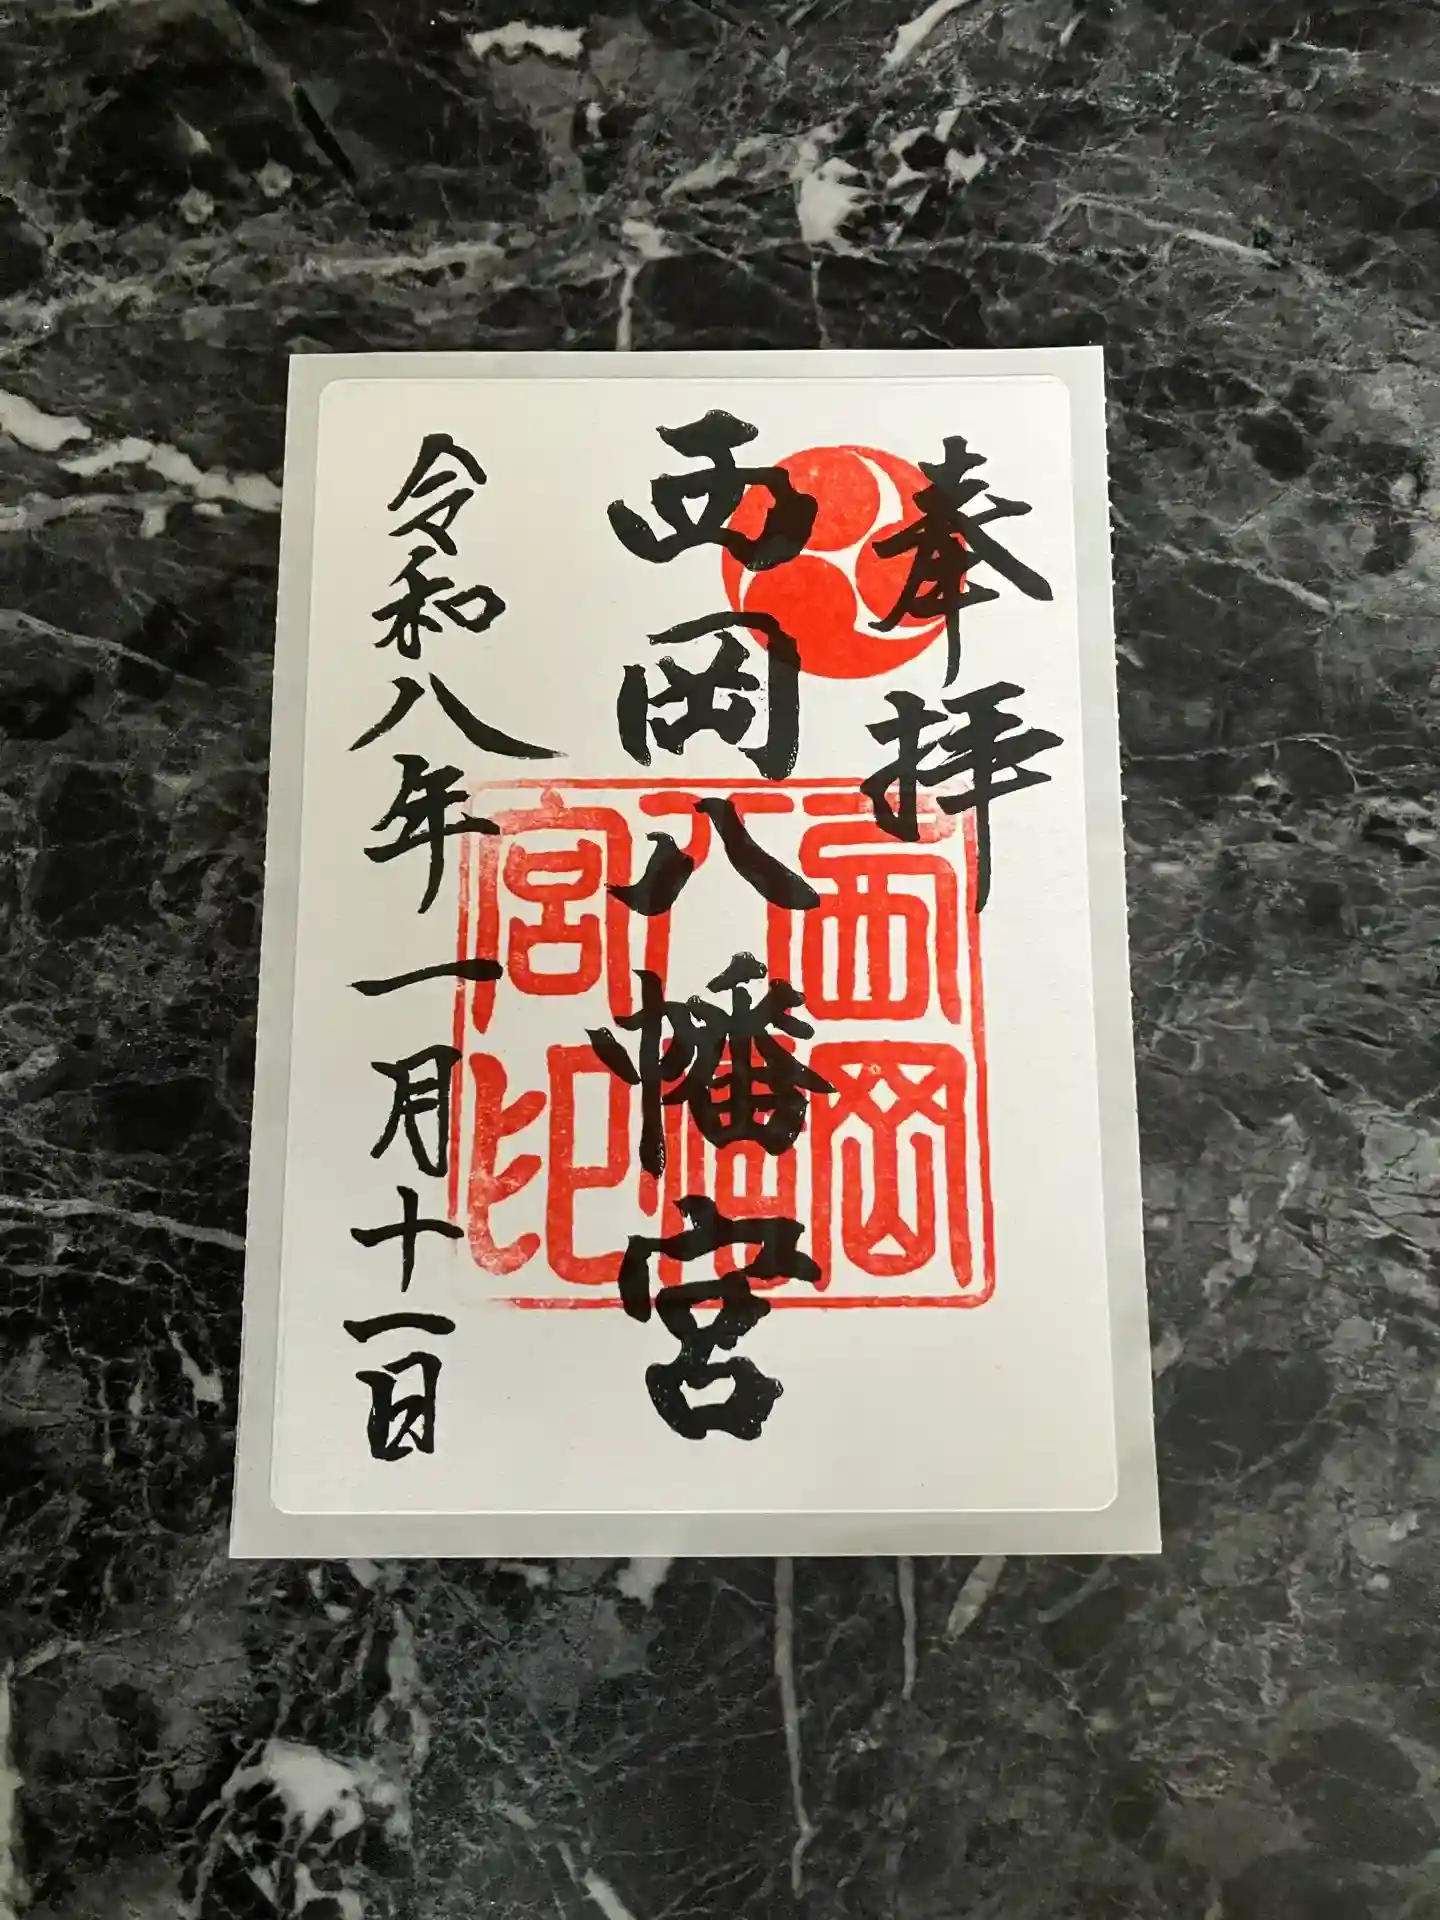 奉拝
西岡八幡宮
西岡八幡宮印
令和八年一月十一日